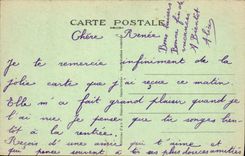 CARTE POSTALE
Chère Renée
Je te remercie infinement de la
jolie carte que j'ai reçue ce matin.
Elle m'a fait grand plaisir quand je
l'ai vue, je pense que tu songes bien-
tôt à la rentrée.
Reçois d'une amie qui t'aime et
qui pense souvent à toi ses plus doux
Bons baisers
Bonne fin de
vacances
A Bientôt